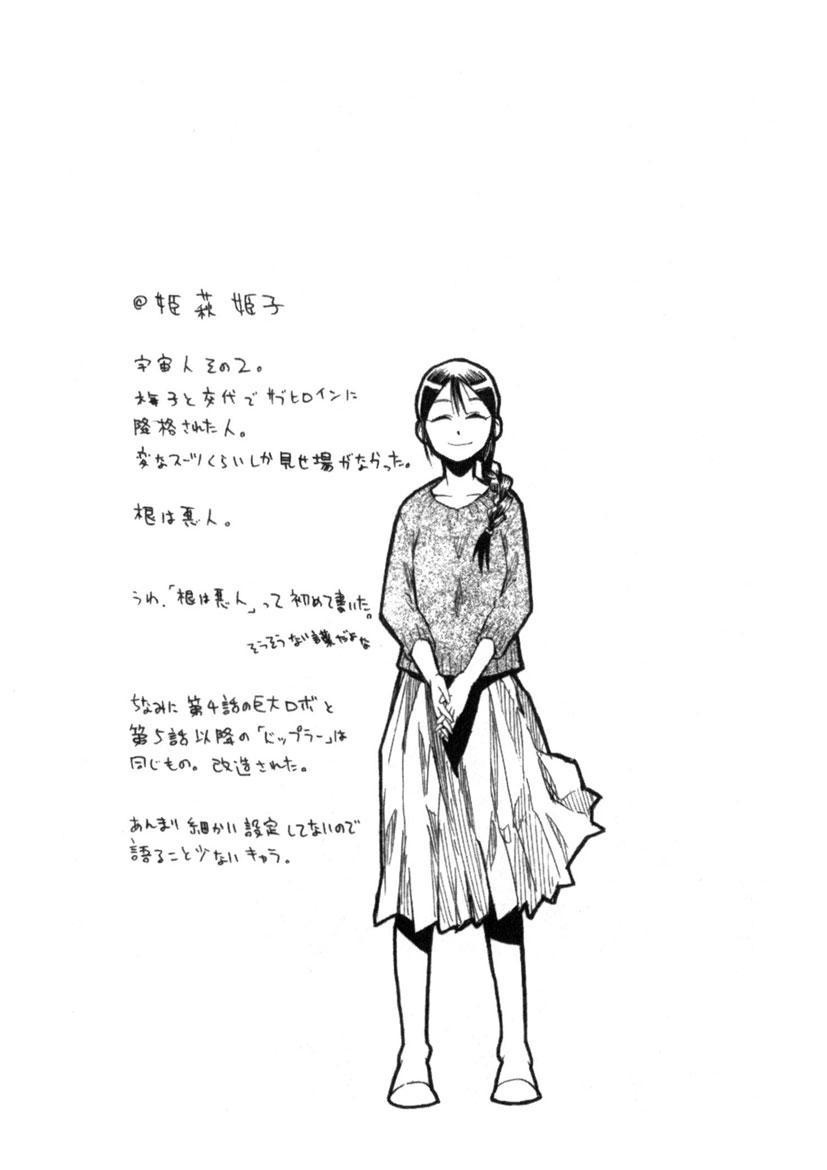 @姫萩姫子
宇宙人その2。
梅子と交代でサブヒロインに
降格された人。
変なスーツくらいしか見せ場がなかった。
根は悪人。
うわ、「根は悪人」って初めて書いた。
そうそうない言葉だよな
ちなみに第4話の巨大ロボと
第5話以降の「ドップラー」は
同じもの。改造された。
あんまり細かい設定してないので
語ること少ないキャラ。